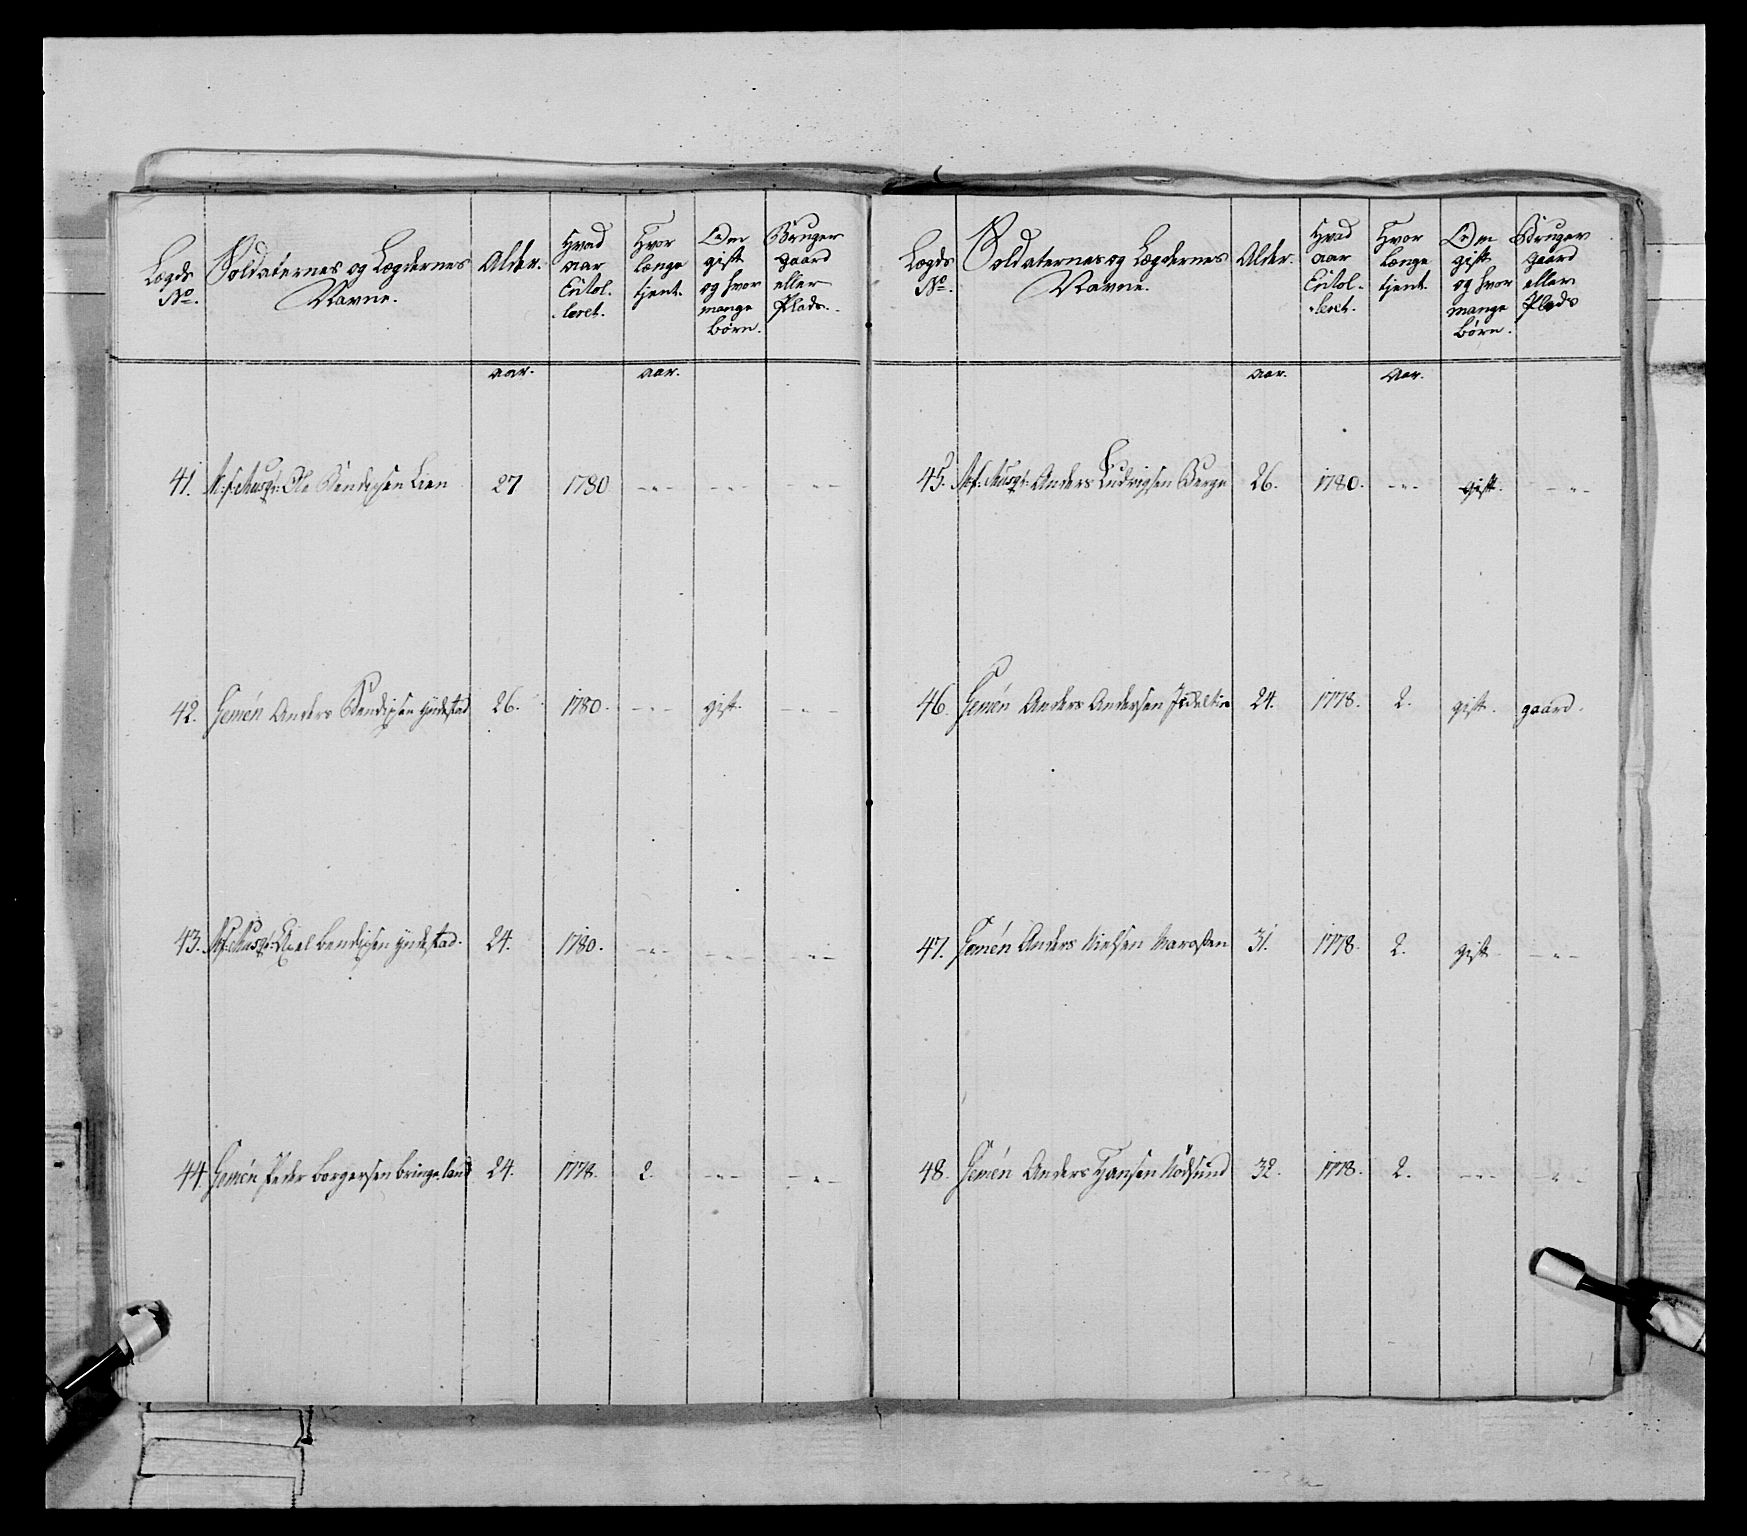 Lægds
No.
Soldaternes og Lægdernes
Navne.
Alder.
Hvad
aar
Enrol-
leret.
Hvor
længe
tjent.
Om
gift
og hvor
mange
børn.
Bruger
gaard
eller
Plads.
aar. aar.
41. Ole Bendixen Lien 27 1780 -"- -"- -"-
42. Gemén Anders Bendixen Yndestad 26. 1780. -"- gift. -"-
43. Axel bendixen Yndestad. 24. 1780. -"- -"- -"-
44. Gemén Peder borgersen bringeland 24. 1778. 2. -"- -"-
Lægds
No.
Soldaternes og Lægdernes
Navne.
Alder.
Hvad
aar
Enrol-
leret.
Hvor
længe
tjent.
Om
gift
og hvor
mange
børn.
Bruger
gaard
eller
Plads
aar. Aar.
45. Anders Ludvigsen Berge 26. 1780. -"- gift. -"-
46. Gemén Anders Andersen 24. 1778. 2. gift. gaard.
47. Gemén Anders Nielsen 31. 1778. 2. gift. -"-
48. Gemén Anders Hansen 32. 1778. 2. -"- -"-